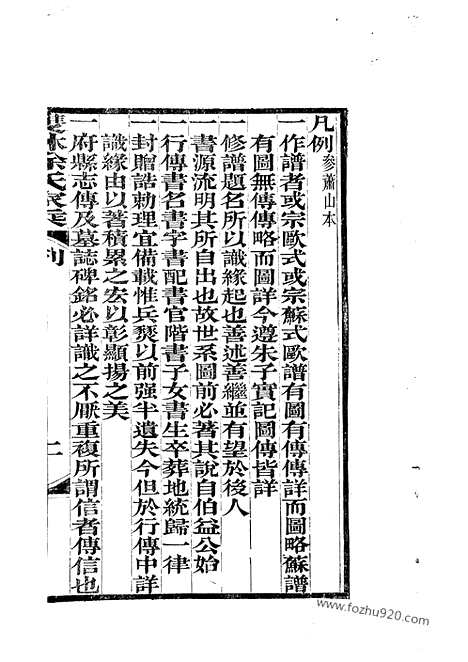 凡例參蕭山本
一作譜者或宗歐式或宗蘇式歐譜有圖有傳傳詳而圖略蘇譜
有圖無傳傳略而圖詳今遵朱子實記圖傳皆詳
一修譜題名所以識緣起也善述善繼並有望於後人
一書源流明其所自出也故世系圖前必著其說自伯益公始
一行傳書名書字書配書官階書子女書生卒葬地統歸一律
一封贈誥勅理宜備載惟兵燹以前强半遺失今但於行傳中詳
識緣由以著積累之宏以彰顯揚之美
一府縣志傳及墓誌碑銘必詳識之不厭重複所謂信者傳信也
雙林徐氏家乘
例
二
www.fozhu920.com